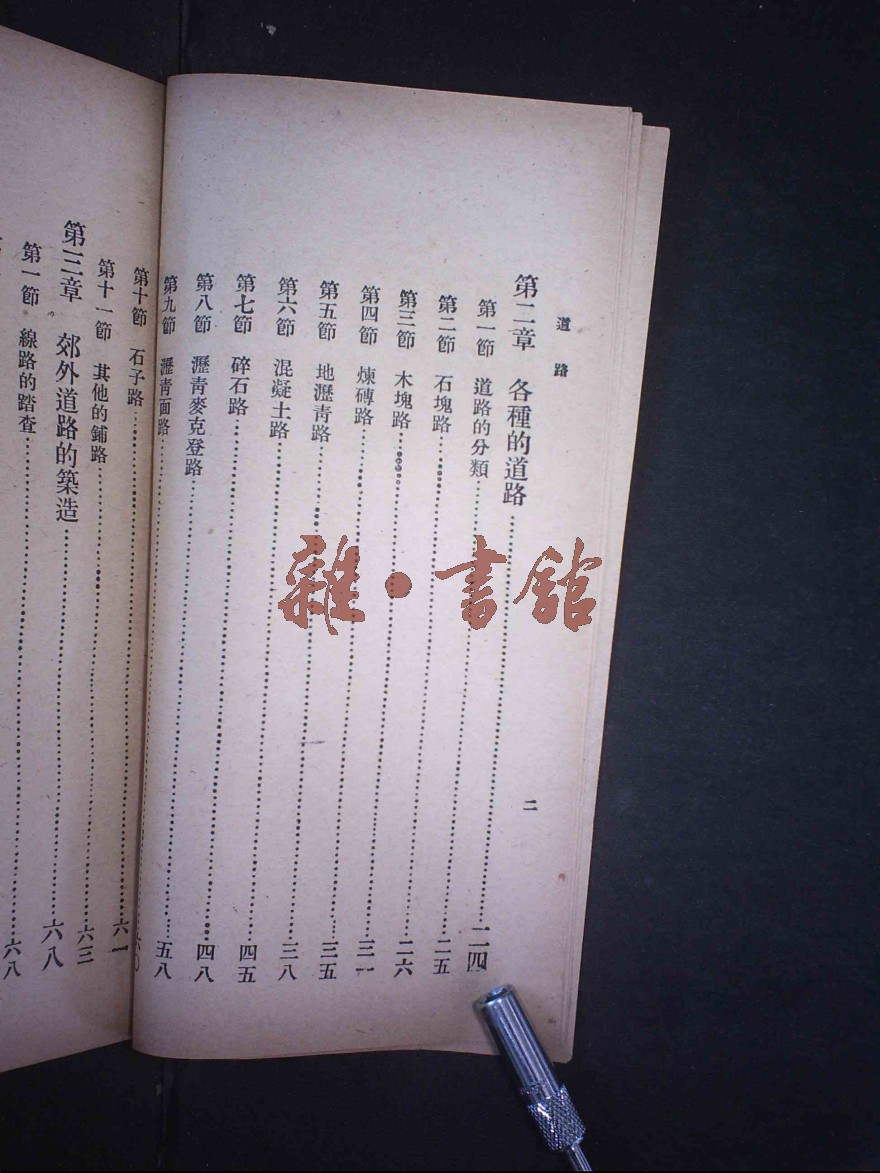 道路
二
第二章 各種的道路……二四
第一節 道路的分類……二五
第二節 石塊路……二六
第三節 木塊路……三一
第四節 煉磚路……三五
第五節 地瀝青路……三八
第六節 混凝土路……四五
第七節 碎石路……四八
第八節 瀝青麥克登路……五八
第九節 瀝青面路……六〇
第十節 石子路……六一
第十一節 其他的鋪路……六三
第三章 郊外道路的築造……六八
第一節 線路的踏查……六八
雜·書館